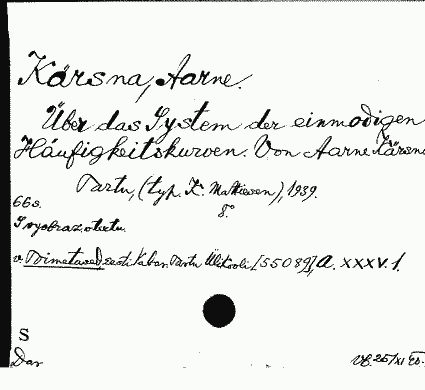 Kärsna, Aarne.
Über das System der einmodigen
Häufigkeitskurven. Von Aarne Kärsna
Tartu, (typ. K. Mattiesen), 1939.
8°
66 s.
v. Toimetused, eesti Vabar. Tartu Ülikooli, [55089], A. XXXV. 1.
S
Dar
25/XI